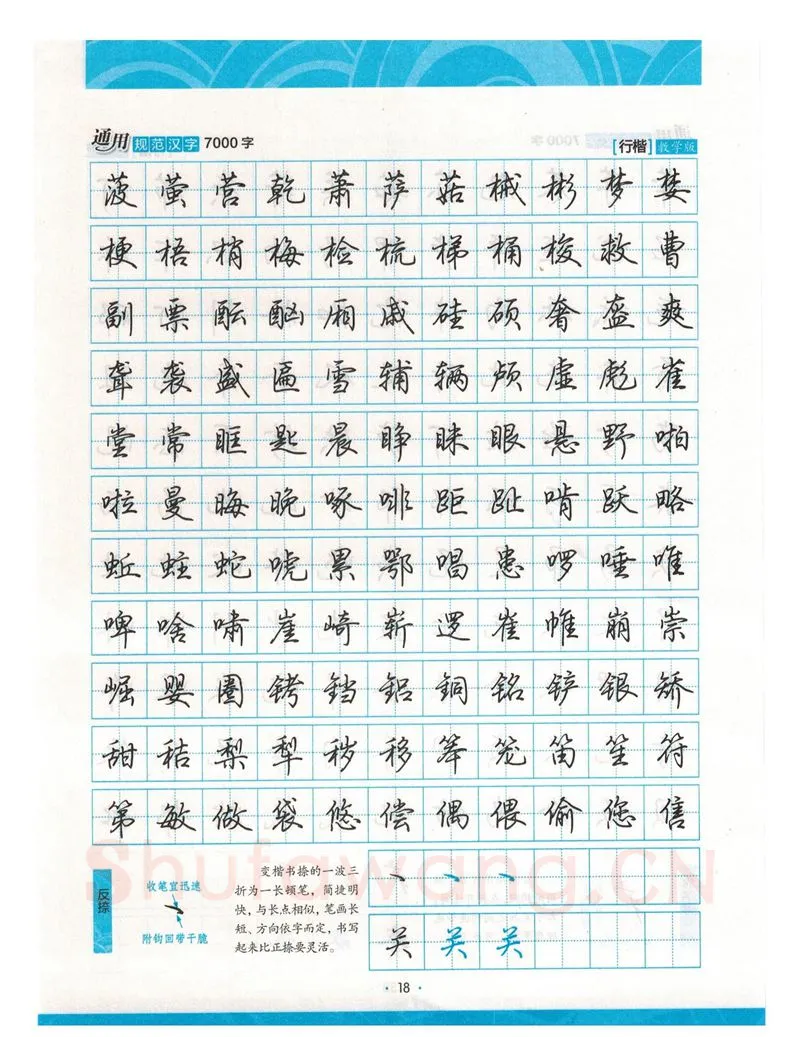 通用 规范汉字 7000字 [行楷] 教学版
菠 萤 营 乾 萧 萨 菇 械 彬 梦 婪
梗 梧 梢 梅 检 梳 梯 桶 梭 救 曹
副 票 酝 酗 厢 戚 硅 硕 奢 盔 爽
聋 袭 盛 匾 雪 辅 辆 颅 虚 彪 雀
堂 常 眶 匙 晨 睁 眯 眼 悬 野 啪
啦 曼 晦 晚 啄 啡 距 趾 啃 跃 略
蚯 蛀 蛇 唬 累 鄂 唱 患 啰 唾 唯
啤 啥 啸 崖 崎 崭 逻 崔 帷 崩 崇
崛 婴 圈 铐 铛 铝 铜 铭 铲 银 矫
甜 秸 梨 犁 秽 移 笨 笼 笛 笙 符
第 敏 做 袋 悠 偿 偶 偎 偷 您 售
反捺
收笔宜迅速
附钩回带干脆
变楷书捺的一波三
折为一长顿笔，简捷明
快，与长点相似，笔画长
短、方向依字而定，书写
起来比正捺要灵活。
关 关 关
· 18 ·
Shufawang.CN